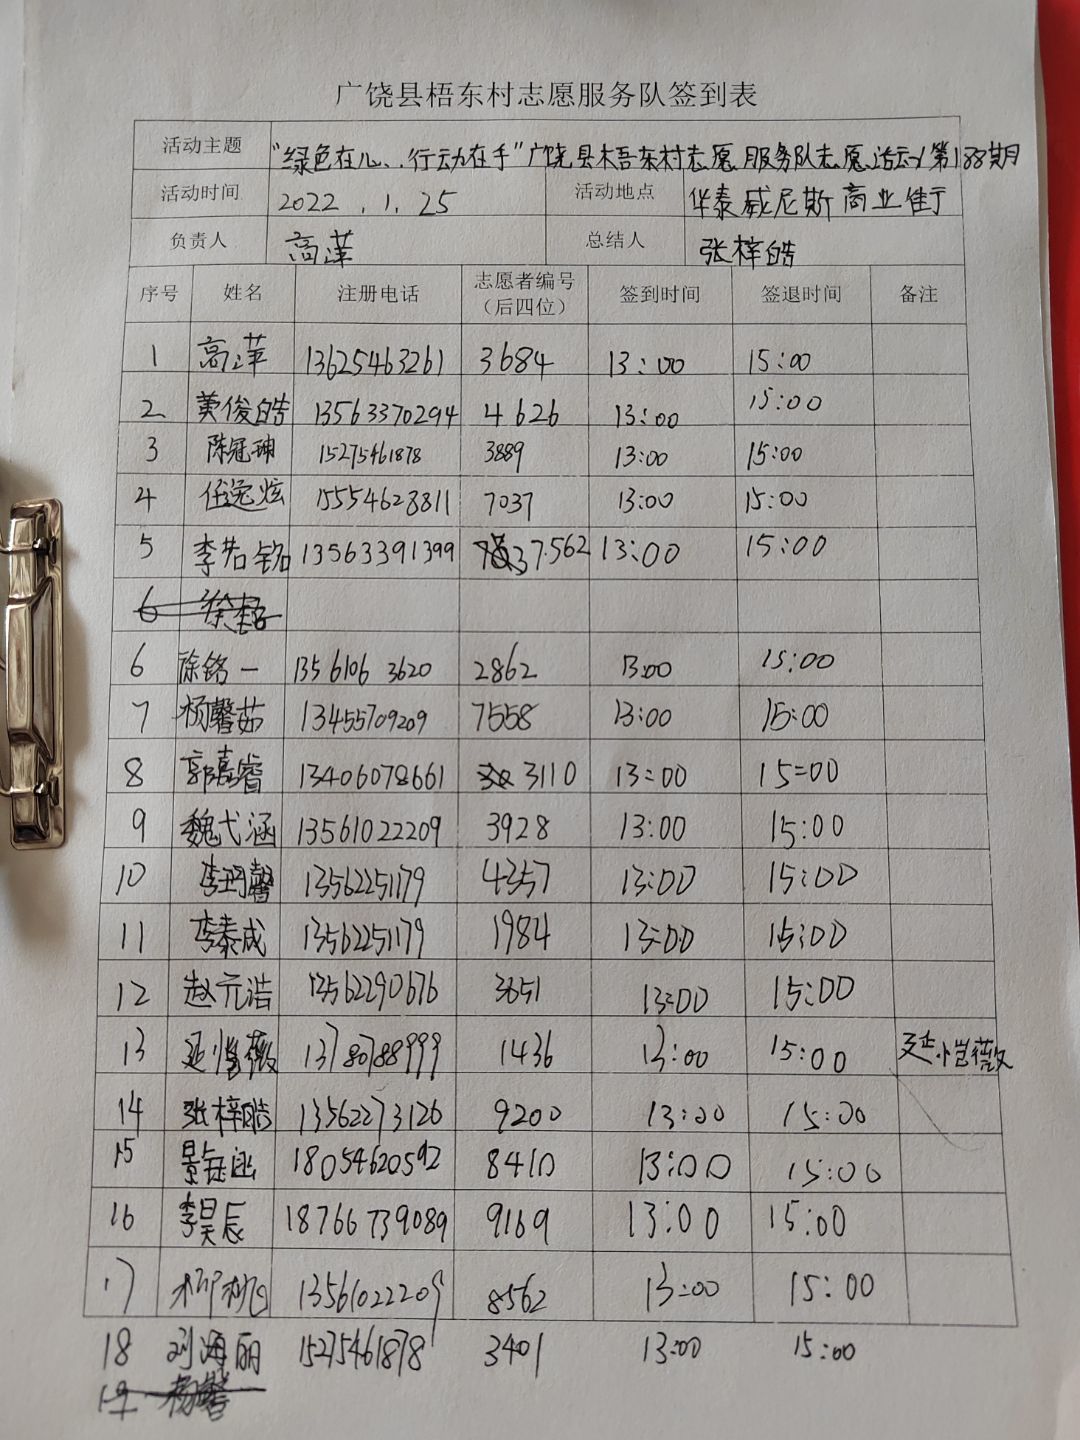 广饶县梧东村志愿服务队签到表
活动主题 "绿色在心、行动在手"广饶县梧东村志愿服务队志愿活动第188期
活动时间 2022.1.25 活动地点 华泰威尼斯商业街
负责人 高萍 总结人 张梓皓
序号 姓名 注册电话 志愿者编号（后四位） 签到时间 签退时间 备注
1 高萍 13625463261 3684 13:00 15:00
2 黄俊皓 13563370294 4626 13:00 15:00
3 陈冠珅 15275461878 3889 13:00 15:00
4 任冠炫 15554623811 7037 13:00 15:00
5 李若铭 13563391399 7562 13:00 15:00
6 徐铭一 13561063620 2862 13:00 15:00
7 杨馨茹 13455709209 7558 13:00 15:00
8 郭嘉睿 13406078661 3110 13:00 15:00
9 魏弋涵 13561022209 3928 13:00 15:00
10 李玥馨 13562251179 4357 13:00 15:00
11 李泰成 13562251179 1984 13:00 15:00
12 赵元浩 13562290676 3651 13:00 15:00
13 延恺薇 13780788999 1436 13:00 15:00 延恺薇
14 张梓皓 13562273126 9200 13:00 15:00
15 景钰涵 18054620592 8410 13:00 15:00
16 李昊辰 18766739089 9169 13:00 15:00
17 柳 13561022209 8562 13:00 15:00
18 刘海丽 15275461878 3401 13:00 15:00